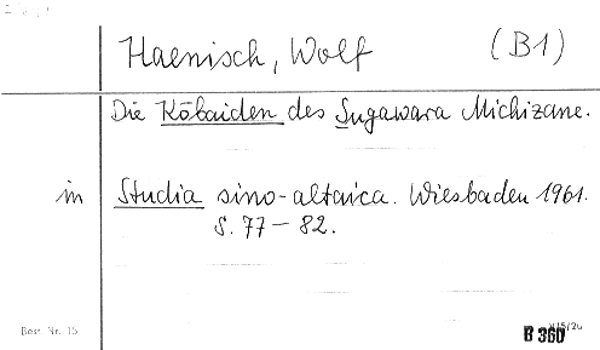 Haenisch, Wolf (B1)
Die Kōbaiden des Sugawara Michizane.
in Studia sino-altaica. Wiesbaden 1961.
S. 77 - 82.
Best. Nr. 15
B 360